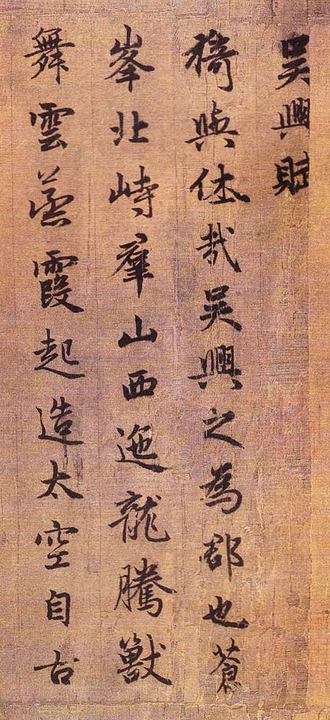 吴興賦
猗與休哉吴興之為郡也蒼
峯北峙羣山西迤龍騰獸
舞雲蒸霞起造太空自古